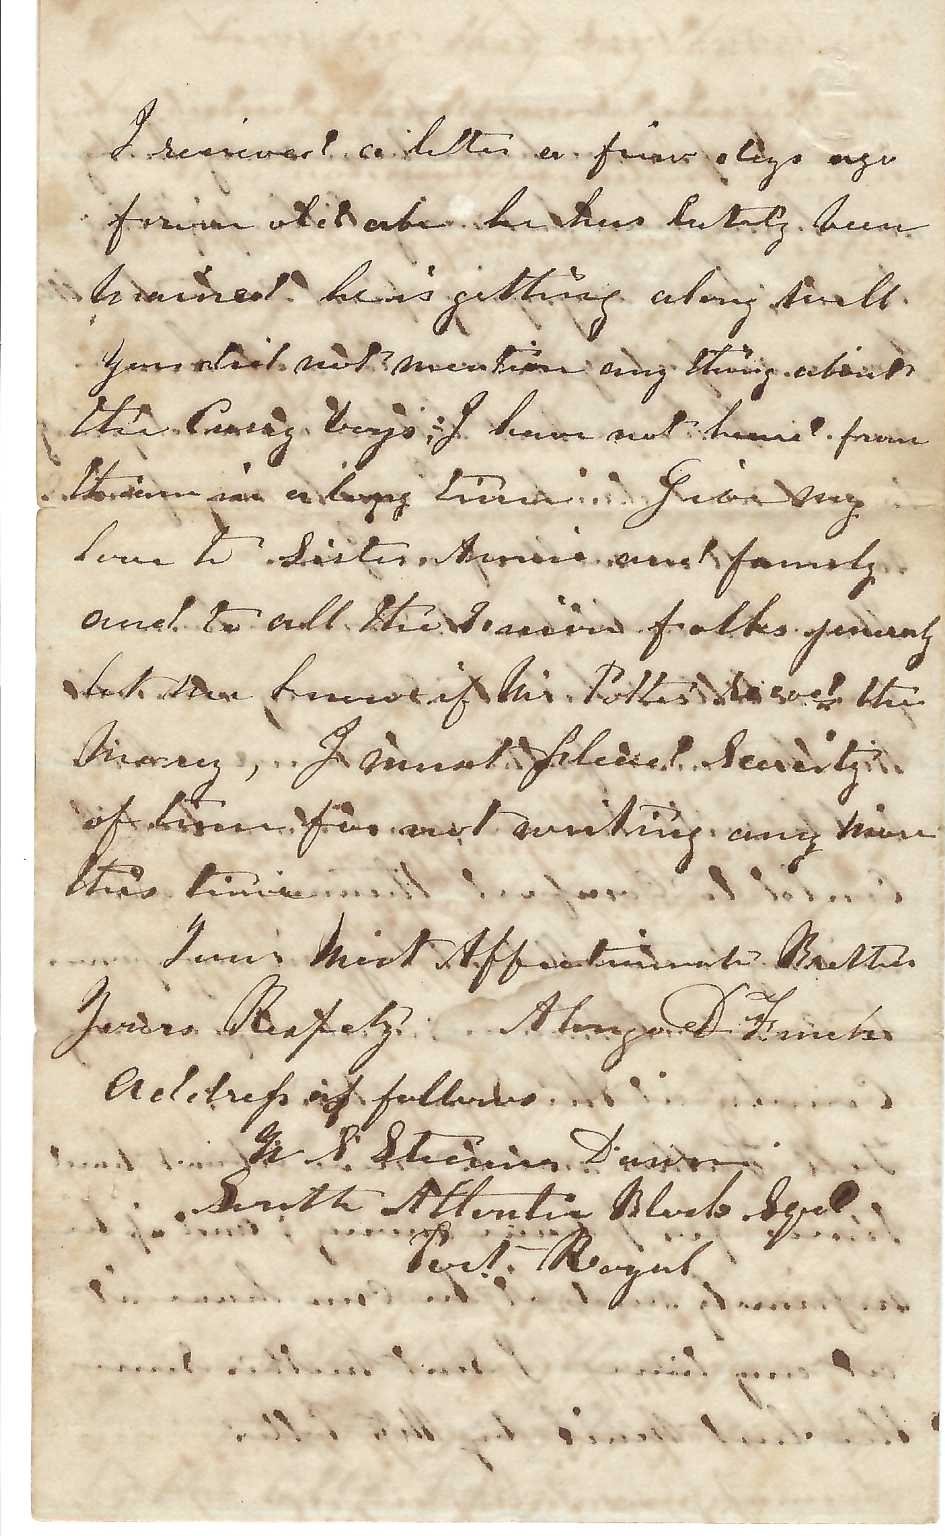 I received a letter a few days ago
from old abe he has lately been
married he is getting along well
you did not mention any thing about
the Casey boys; I have not heard from
them in a long time. Give my
love to Sister Annie and family
and to all the folks generaly
let me know if Mr. Potter the
Money, I must plead Scarsity
of time for not writing any more
this time
Your Most Affectionate Brother
Yours Respfcly Alonzo D Finch
Address as follows
U S Steamer Dawn
South Atlantic Block Sqd
Port Royal